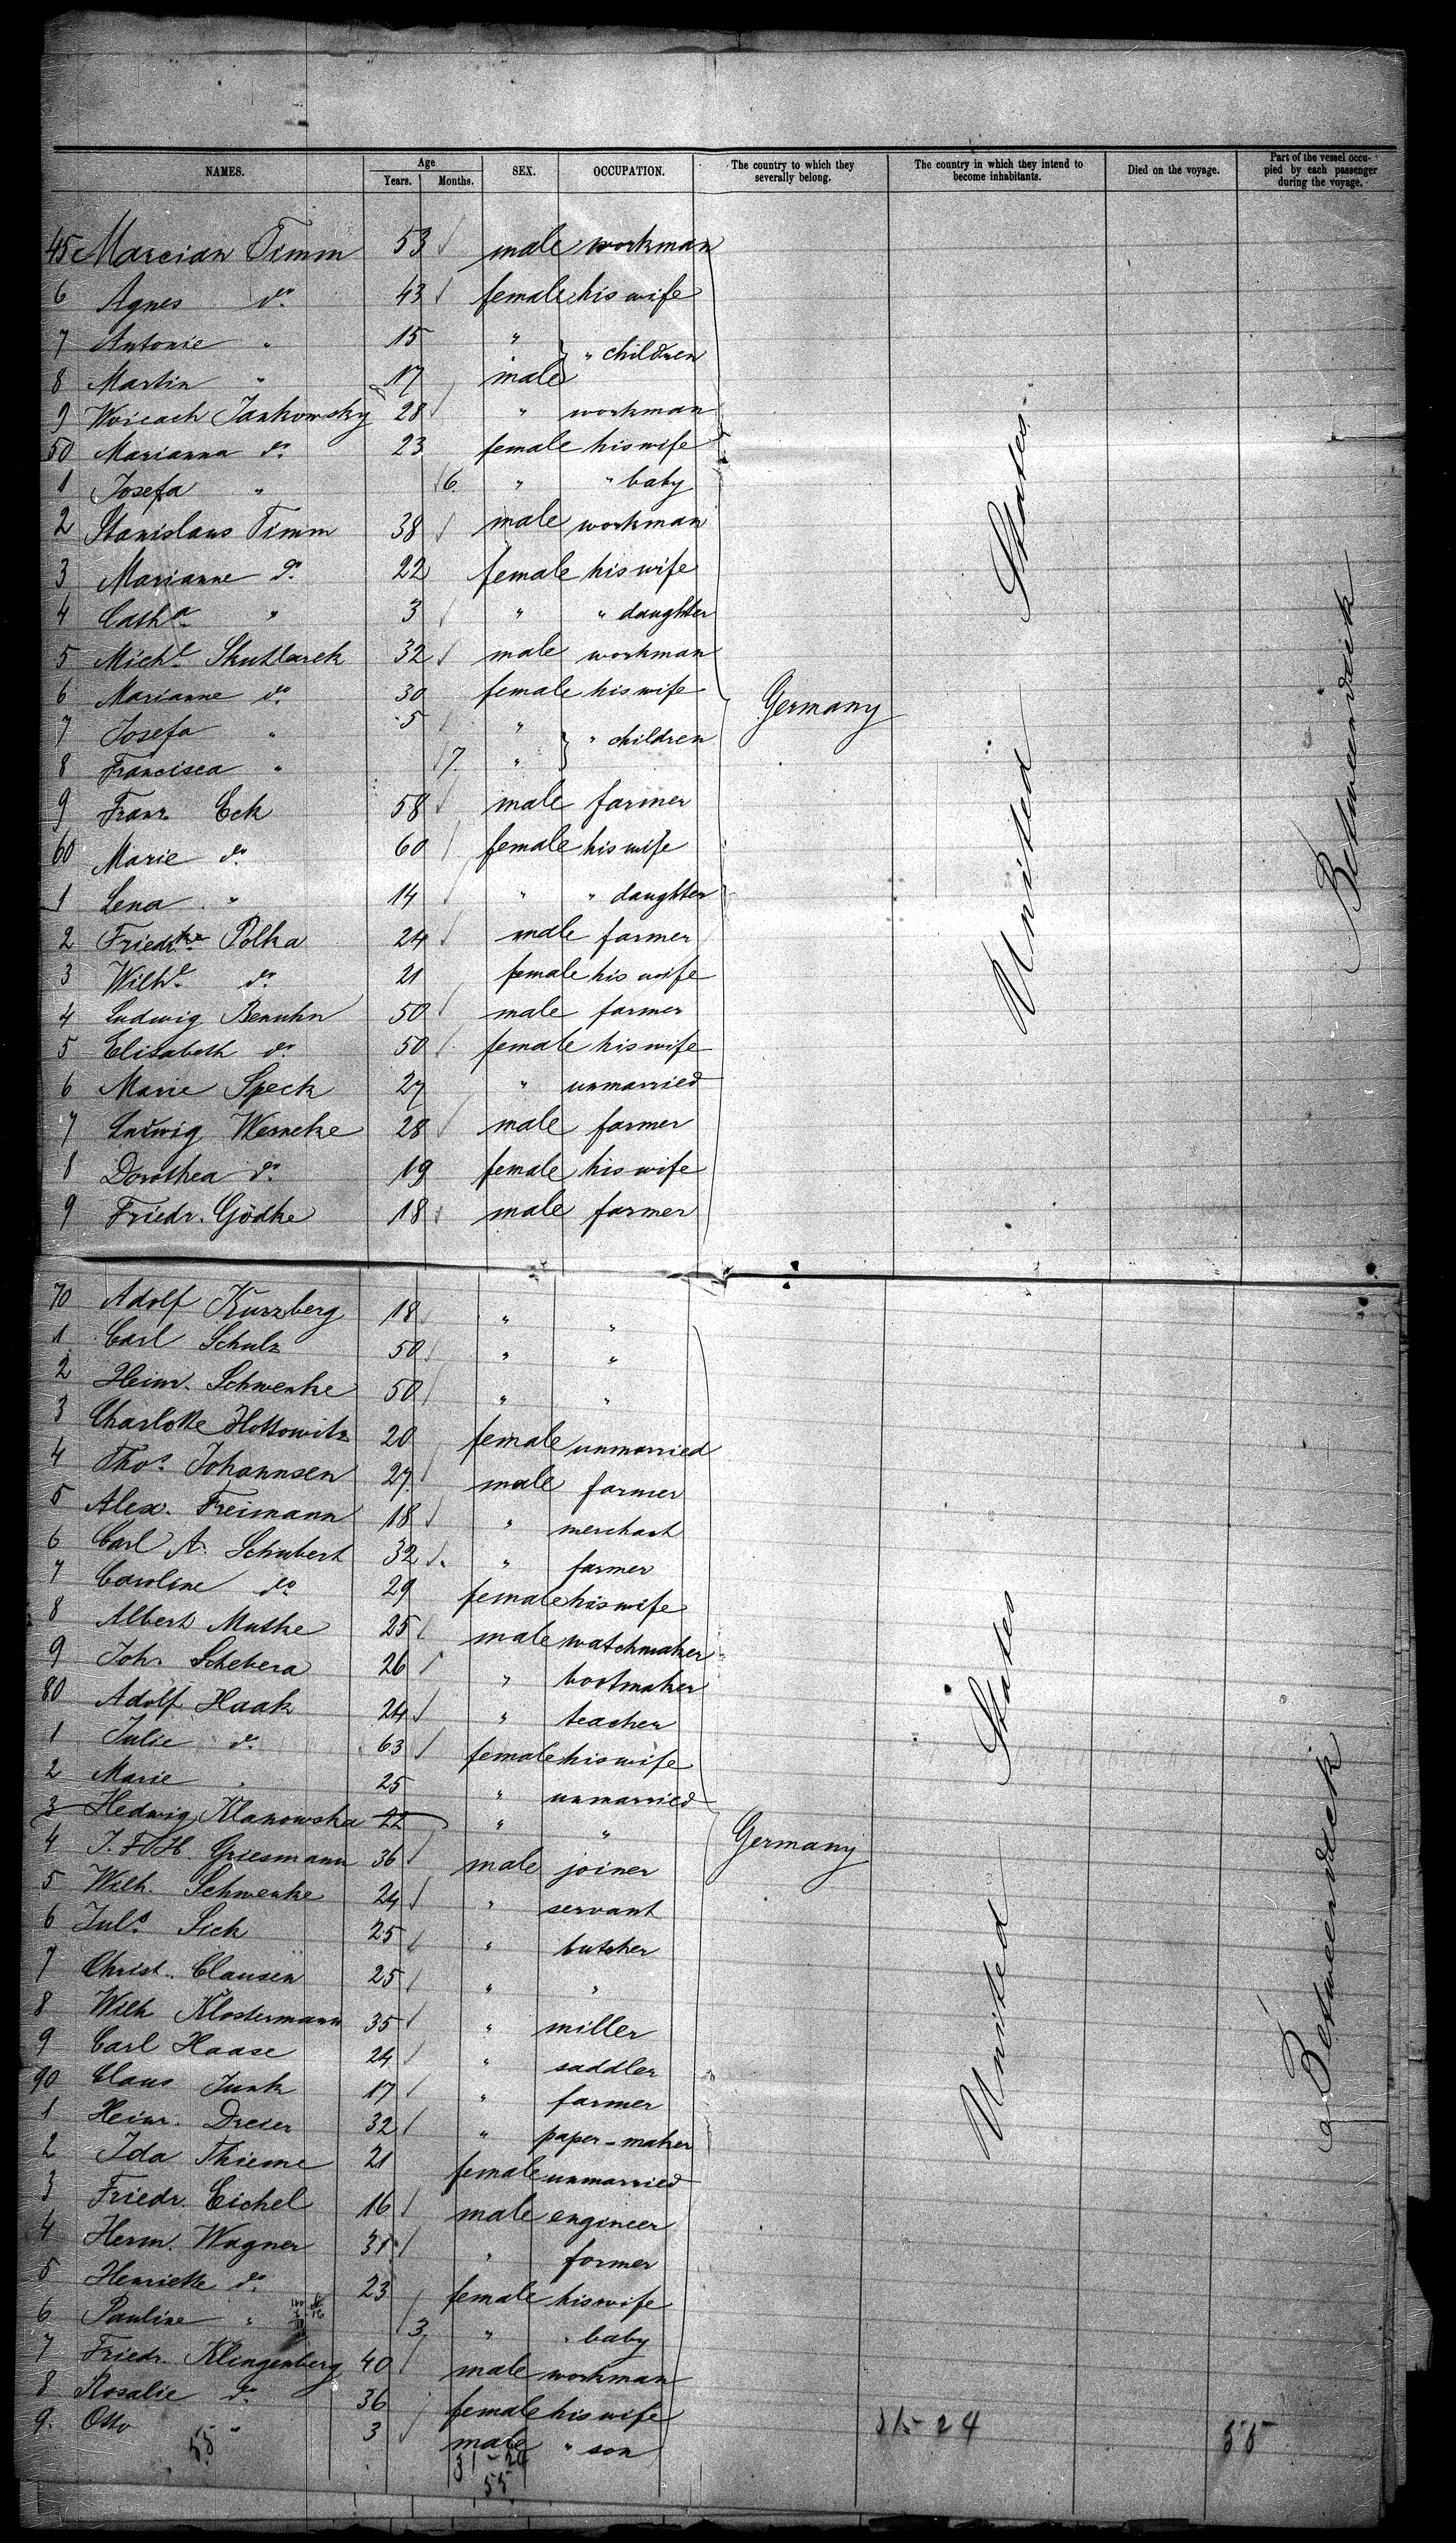 NAMES. Age Years. Months. SEX. OCCUPATION. The country to which they severally belong. The country in which they intend to become inhabitants. Died on the voyage. Part of the vessel occupied by each passenger during the voyage.
45 Marcian Timm 53 male workman
6 Agnes do. 43 female his wife
7 Antonie " 15 " " children
8 Martin " 17 male
9 Woicach Jankowsky 28 " workman
50 Marianna do. 23 female his wife
1 Josefa " 6. " " baby
2 Stanislaus Timm 38 male workman
3 Marianne do. 22 female his wife
4 Catha. " 3 " " daughter
5 Michl. Skutlarek 32 male workman
6 Marianne do. 30 female his wife
7 Josefa " 5 " " children
Germany
8 Francisca " 7. "
9 Franz Eck 58 male farmer
60 Marie do. 60 female his wife
1 Lena " 14 " " daughter
2 Friedrke Polka 24 male farmer
3 Wilhe. do. 21 female his wife
4 Ludwig Benuhn 50 male farmer
5 Elisabeth do. 50 female his wife
6 Marie Speck 27 " unmarried
7 Ludwig Werneke 28 male farmer
8 Dorothea do. 19 female his wife
9 Friedr. Gödke 18 male farmer
United States
Betweendeck
70 Adolf Kurzberg 18 " "
1 Carl Schulz 50 " "
2 Heinr. Schwenke 50 " "
3 Charlotte Hottowitz 20 female unmarried
4 Thos. Johannsen 27. male farmer
5 Alex. Freimann 18 " merchant
6 Carl A. Schubert 32 " farmer
7 Caroline do. 29 female his wife
8 Albert Muthe 25 male watchmaker
9 Joh. Schebera 26 " bootmaker
80 Adolf Haak 24 " teacher
1 Julie do. 63 female his wife
2 Marie " 25 " unmarried
3 Hedwig Klanowska 22 " "
4 J. F. H. Griesmann 36 male joiner
Germany
5 Wilh. Schwenke 24 " servant
6 Juls. Sick 25 " butcher
7 Christ. Clausen 25 " "
8 Wilh Klostermann 35 " miller
9 Carl Haase 24 " saddler
90 Claus Junk 17 " farmer
1 Heinr. Dreier 32 " paper-maker
2 Ida Thieme 21 female unmarried
3 Friedr. Eichel 16 male engineer
4 Herm. Wagner 31 " farmer
5 Henriette do. 23 female his wife
6 Pauline " 3 " " baby
7 Friedr. Klingenberg 40 male workman
8 Rosalie do. 36 female his wife
9. Otto " 3 male " son
United States
Betweendeck
55 31-24 31-24 55
55